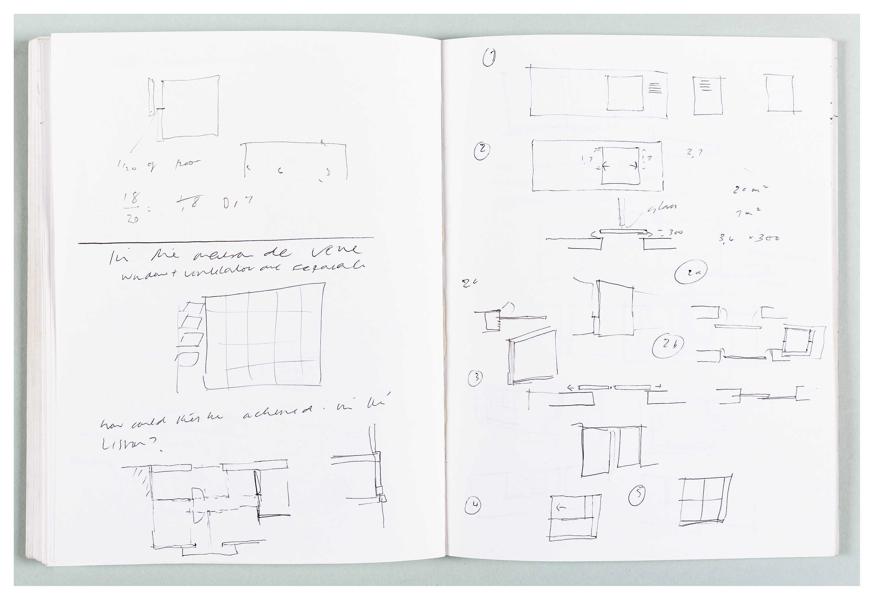 1/20 of floor
6
3
18
20 = 1,8 0,9
In the maison de verre
window + ventilator are separate
how could this be achieved in the
Lisson?
1
2
1,7 1,7 2,7
20 m²
1 m²
glass
300
3,4 × 300
2a
2c
2b
3
4
5